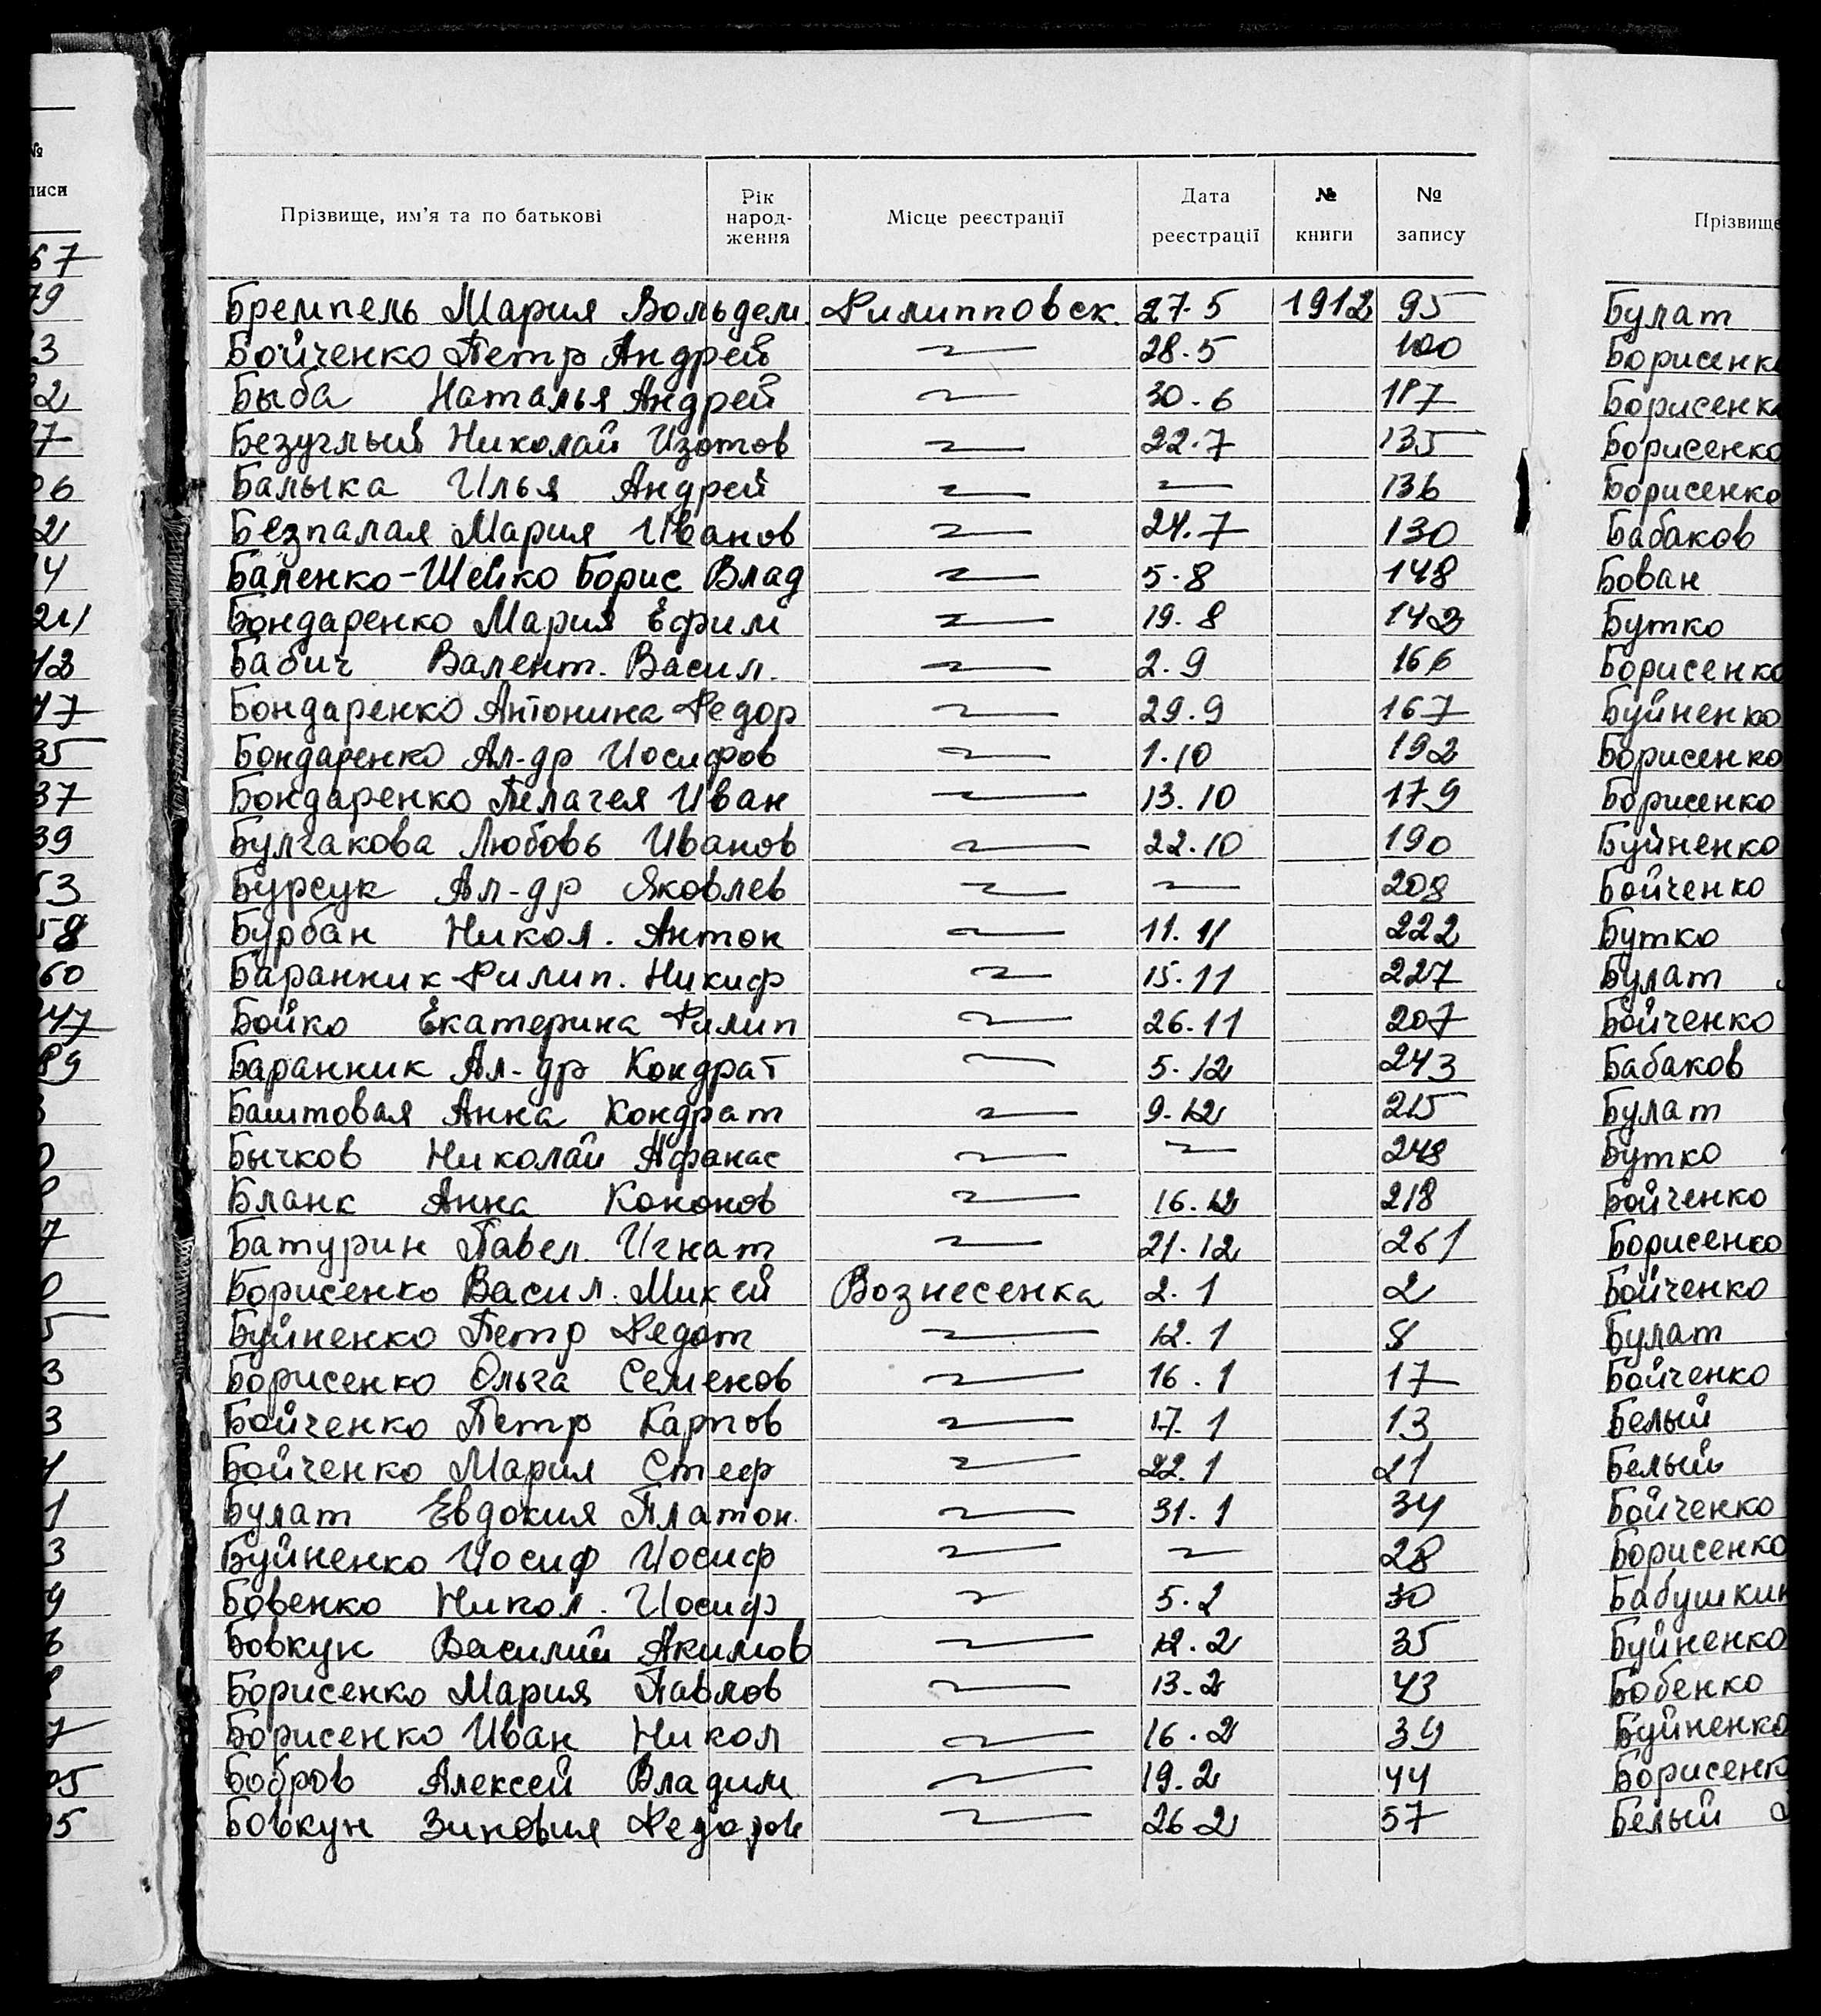 №
писи
Прізвище, им'я та по батькові Рік народ- ження Місце реєстрації Дата реєстрації № книги № запису
Прізвище
67
79
Бремпель Мария Вольдем. Филипповск. 27.5 1912 95 Булат
3 Бойченко Петр Андрей 28.5 100 Борисенко
2 Быба Наталья Андрей 30.6 117 Борисенко
7 Безуглый Николай Изотов 22.7 135 Борисенко
06 Балыка Илья Андрей 136 Борисенко
2 Безпалая Мария Иванов 24.7 130 Бабаков
4 Баленко-Шейко Борис Влад 5.8 148 Бован
Бондаренко Мария Ефим 19.8 142 Бутко
12 Бабич Валент. Васил. 2.9 166 Борисенко
17 Бондаренко Антонина Федор 29.9 167 Буйненко
35 Бондаренко Ал-др Иосифов 1.10 192 Борисенко
37 Бондаренко Пелагея Иван 13.10 179 Борисенко
39 Булгакова Любовь Иванов 22.10 190 Буйненко
53 Бурсук Ал-др Яковлев 208 Бойченко
58 Бурбан Никол. Антон 11.11 222 Бутко
60 Баранник Филип. Никиф 15.11 227 Булат
47 Бойко Екатерина Филип 26.11 207 Бойченко
89 Баранник Ал-др Кондрат 5.12 243 Бабаков
Баштовая Анна Кондрат 9.12 215 Булат
0 Бычков Николай Афанас 248 Бутко
Бланк Анна Кононов 16.12 218 Бойченко
7 Батурин Павел. Игнат 21.12 261 Борисенко
0 Борисенко Васил. Мик ей Вознесенка 2.1 2 Бойченко
5 Буйненко Петр Федот 12.1 8 Булат
3 Борисенко Ольга Семенов 16.1 17 Бойченко
3 Бойченко Петр Карпов 17.1 13 Белый
1 Бойченко Мария Стеф 22.1 21 Белый
1 Булат Евдокия Платон. 31.1 34 Бойченко
3 Буйненко Иосиф Иосиф 28 Борисенко
9 Бовенко Никол. Иосиф 5.2 30 Бабушкин
Бовкун Василий Акимов 12.2 35 Буйненко
Борисенко Мария Павлов 13.2 43 Бобенко
7 Борисенко Иван Никол 16.2 39 Буйненко
05 Бобров Алексей Владим. 19.2 44 Борисенко
05 Бовкун Зиновия Федоров 26.2 57 Белый